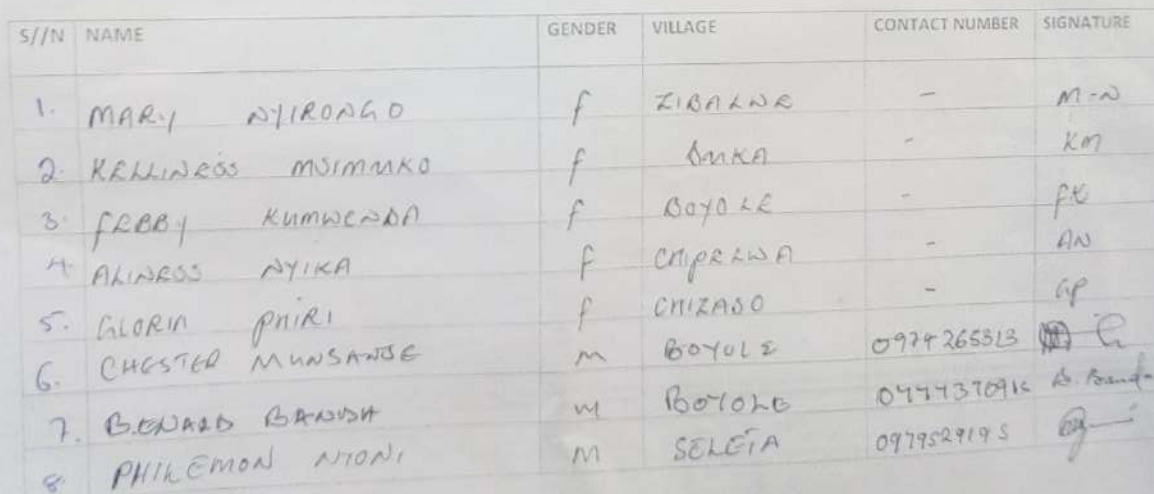 S//N NAME GENDER VILLAGE CONTACT NUMBER SIGNATURE
1. MARY NYIRONGO f ZIBALWE - M-N
2. KELLINESS MSIMUKO f - KM
3. FEBBY KUMWENDA f BOYOLE - FK
4. ALINESS NYIKA f CHIPELWA - AN
5. GLORIA PHIRI f CHIZASO - GP
6. CHESTER MUNSANJE M BOYOLE 0974265313
7. BENARD BANDA M BOYOLE B. Banda
8. PHILEMON M SELETA 0979529195